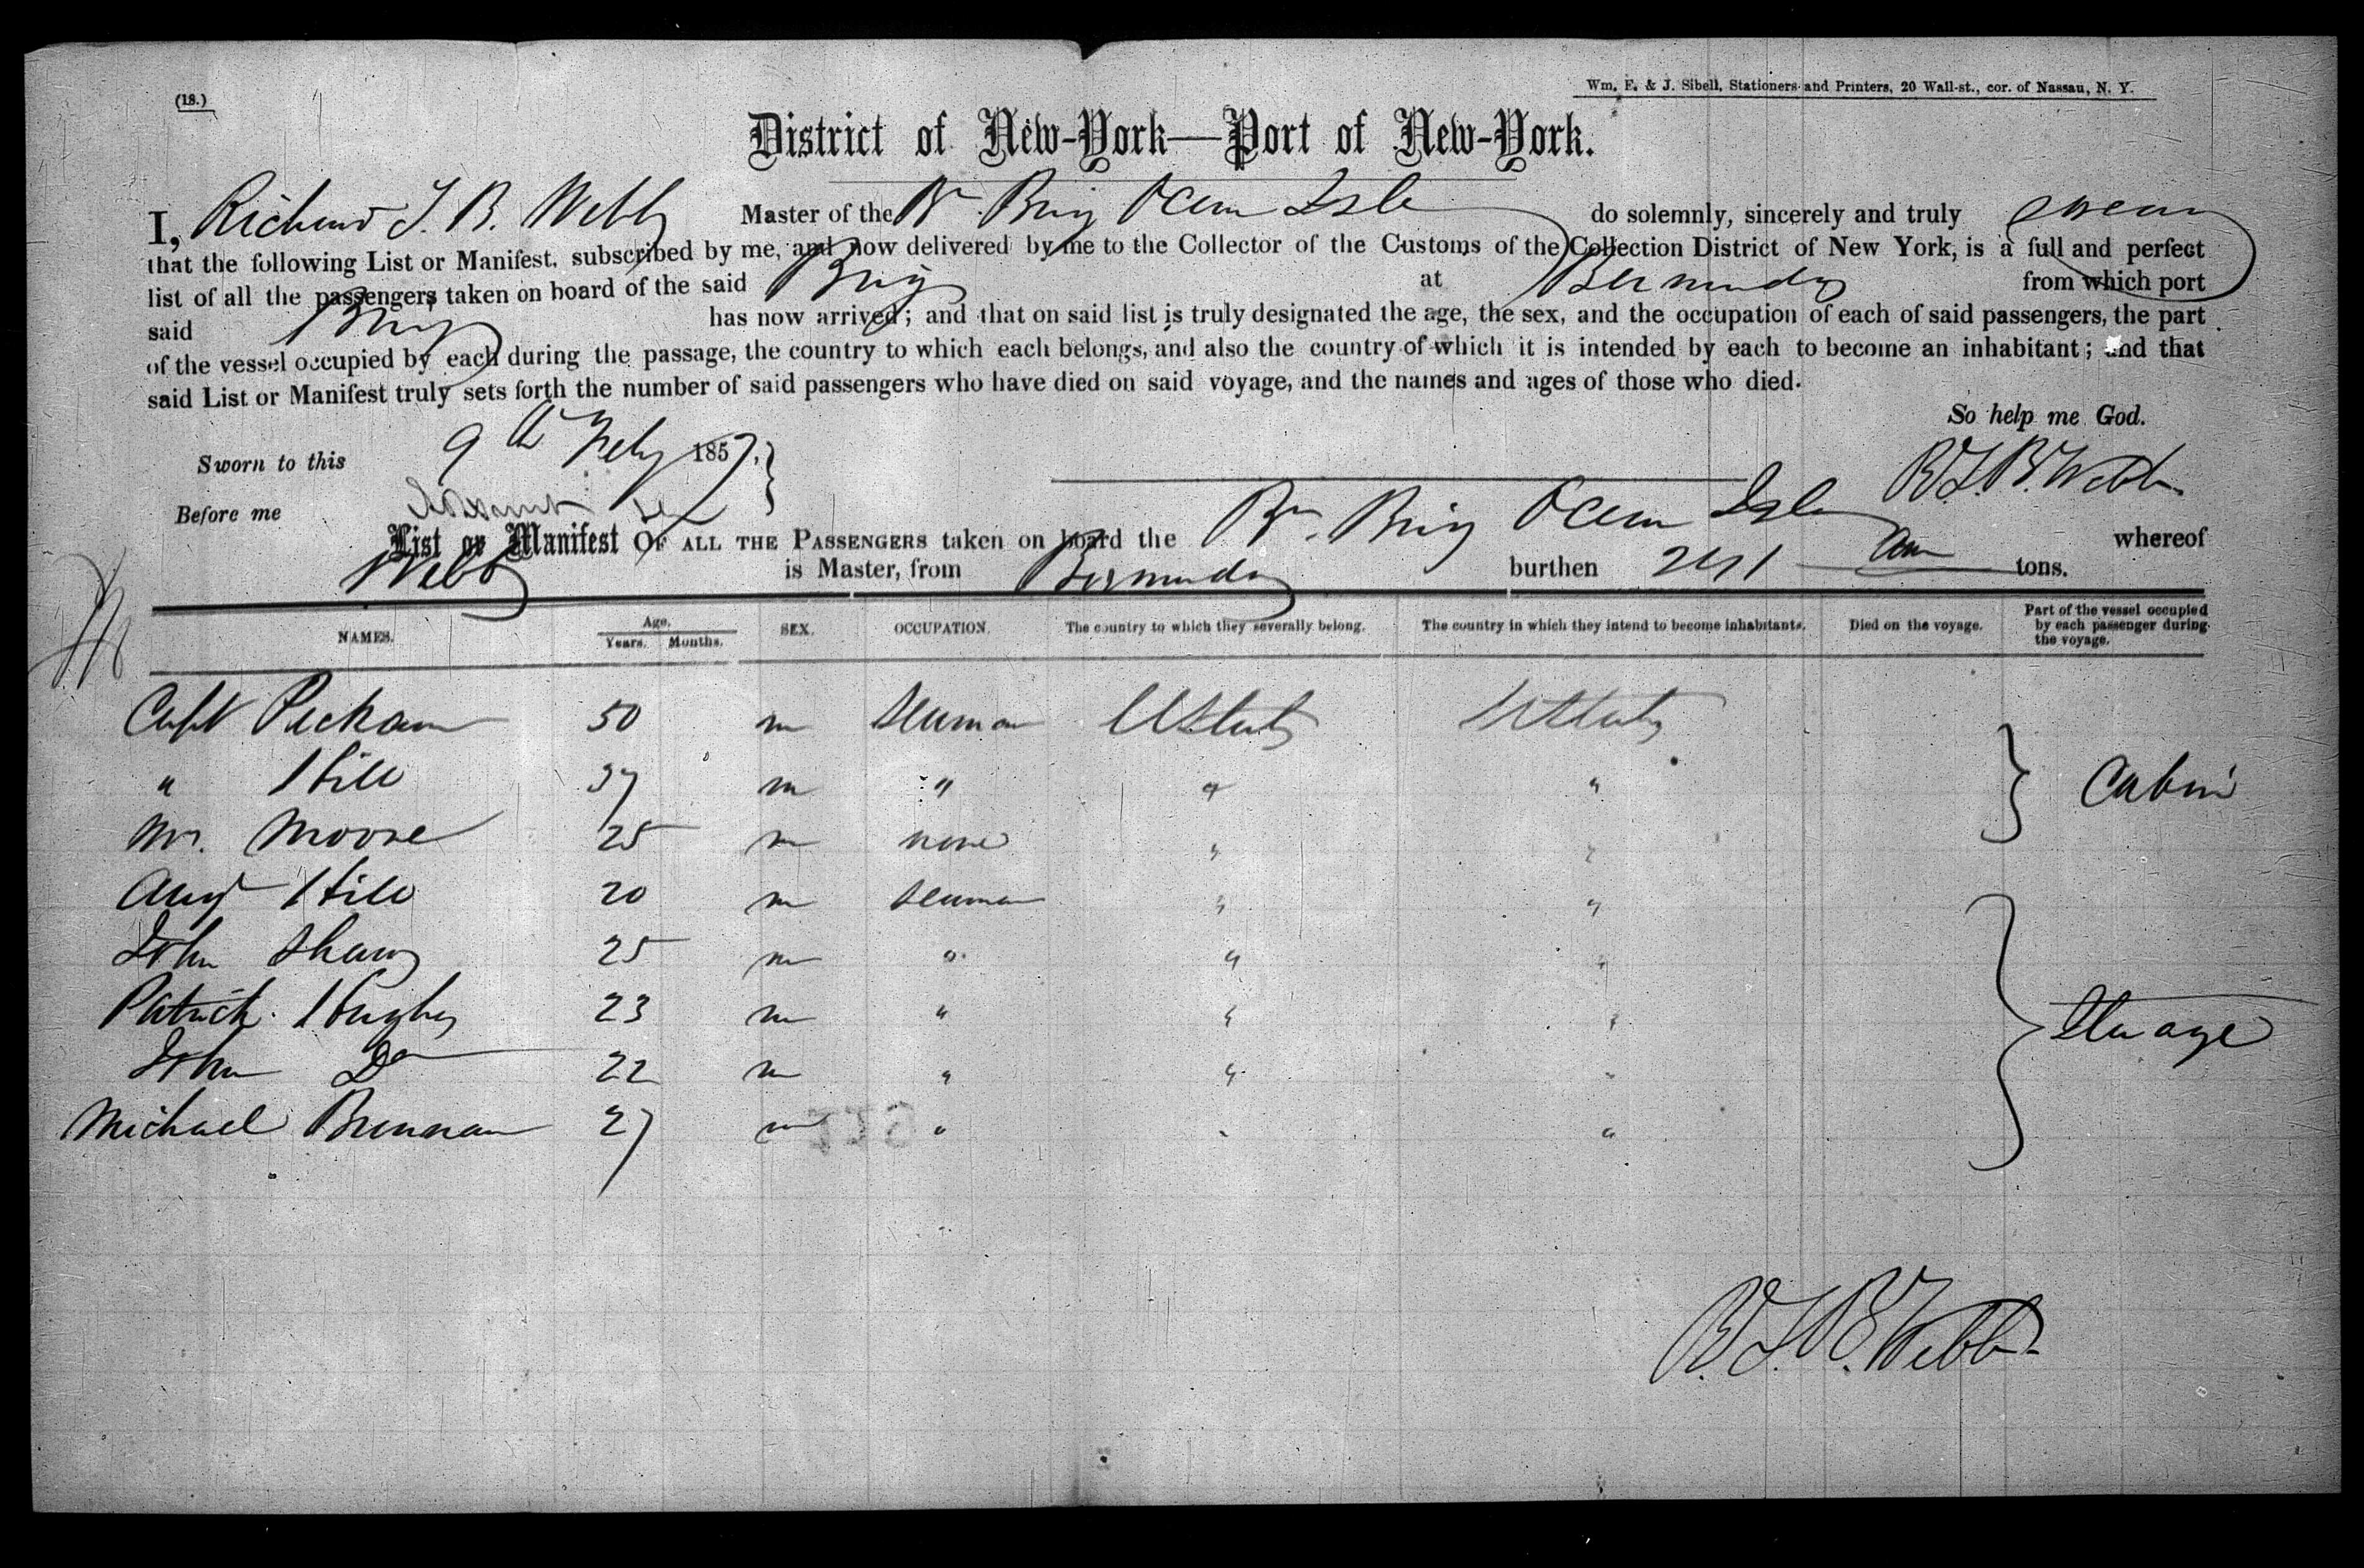 (18.)
Wm. E. & J. Sibell, Stationers and Printers, 20 Wall-st., cor. of Nassau, N. Y.
District of New-York—Port of New-York.
I, Richard J. B. Webb Master of the Br. Brig Ocean Isle do solemnly, sincerely and truly swear
that the following List or Manifest, subscribed by me, and now delivered by me to the Collector of the Customs of the Collection District of New York, is a full and perfect
list of all the passengers taken on board of the said Brig at Bermuda from which port
said Brig has now arrived; and that on said list is truly designated the age, the sex, and the occupation of each of said passengers, the part
of the vessel occupied by each during the passage, the country to which each belongs, and also the country of which it is intended by each to become an inhabitant; and that
said List or Manifest truly sets forth the number of said passengers who have died on said voyage, and the names and ages of those who died.
So help me God.
Sworn to this 9th Feby 1857. R J. B. Webb
Before me
List or Manifest OF ALL THE PASSENGERS taken on board the Br. Brig Ocean Isle whereof
Webb is Master, from Bermuda burthen tons.
NAMES. Age. Years. Months. SEX. OCCUPATION. The country to which they severally belong. The country in which they intend to become inhabitants. Died on the voyage. Part of the vessel occupied by each passenger during the voyage.
Capt Peckam 50 m Seaman U States U States
" Hill 37 m " " " Cabin
Mr. Moore 25 m none " "
Augt Hill 20 m Seaman " "
John Shaw 25 m " " "
Patrick Hughes 23 m " " " Steerage
John 22 m " " "
Michael Brennan 27 m " " "
R. J. B. Webb